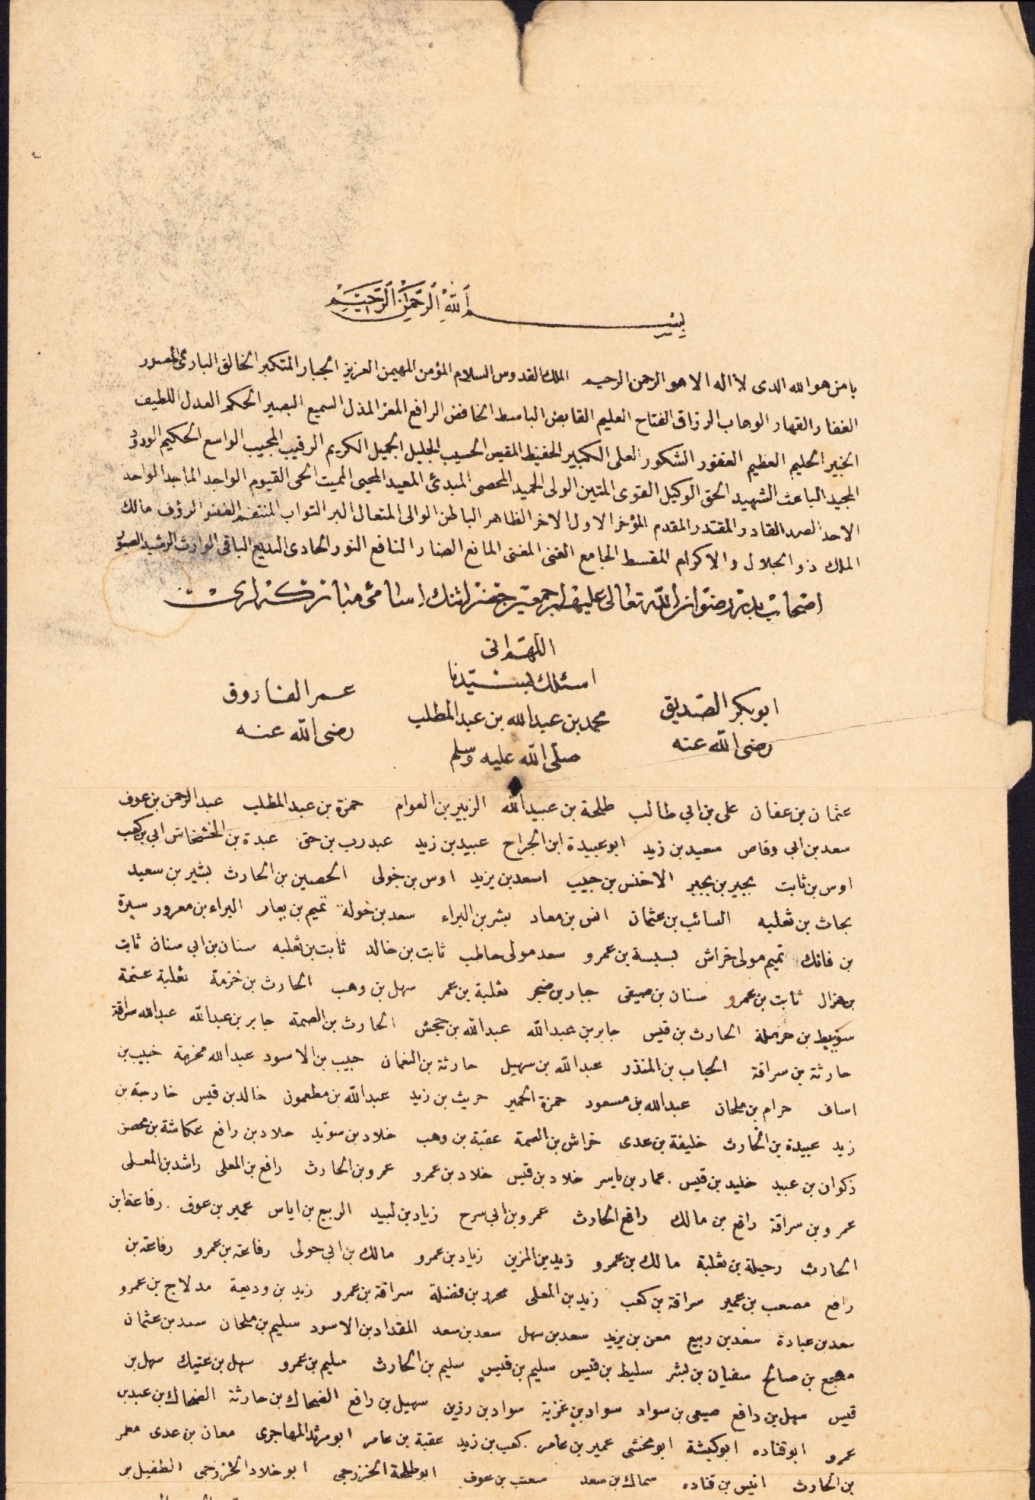 بِسْمِ اللّٰهِ الرَّحْمٰنِ الرَّحِيْمِ
يا من هو الله الذى لا اله الا هو الرحمن الرحيم الملك القدوس السلام المؤمن المهيمن العزيز الجبار المتكبر الخالق البارئ المصور
الغفار القهار الوهاب الرزاق الفتاح العليم القابض الباسط الخافض الرافع المعز المذل السميع البصير الحكم العدل اللطيف
الخبير الحليم العظيم الغفور الشكور العلى الكبير الحفيظ المقيت الحسيب الجليل الجميل الكريم الرقيب المجيب الواسع الحكيم الودود
المجيد الباعث الشهيد الحق الوكيل القوى المتين الولى الحميد المحصى المبدئ المعيد المحيى المميت الحى القيوم الواحد الماجد الواحد
الاحد الصمد القادر المقتدر المقدم المؤخر الاول الاخر الظاهر الباطن الوالى المتعال البر التواب المنتقم العفو الرؤف مالك
الملك ذو الجلال والاكرام المقسط الجامع الغنى المغنى المانع الضار النافع النور الهادى البديع الباقى الوارث الرشيد الصبور
اصحاب بدر رضوان الله تعالى عليهم اجمعين حضراتنك اسامئ
اللهم انى
اسئلك بسيدنا
محمد بن عبدالله بن عبدالمطلب
صلى الله عليه وسلم
ابو بكر الصديق
رضى الله عنه
عمر الفاروق
رضى الله عنه
عثمان بن عفان على بن ابي طالب طلحة بن عبيدالله الزبير بن العوام حمزة بن عبد المطلب عبد الرحمن بن عوف
سعد بن ابى وقاص سعيد بن زيد ابو عبيدة ابن الجراح عبيد بن زيد عبد رب بن حق عبدة بن الخشخاش ابى بن كعب
اوس بن ثابت بجير بن بجير الاخنس بن حبيب اسعد بن يزيد اوس بن خولى الحصين بن الحارث بشير بن سعيد
بحاث بن ثعلبه السائب بن عثمان انس بن معاد بشر بن البراء سعد بن خولة تميم بن يعار البراء بن معرور سبرة
بن فاتك تميم مولى خراش بسبسة بن عمرو سعد مولى حاطب ثابت بن خالد ثابت بن ثعلبه سنان بن ابى سنان ثابت
بن هزال ثابت بن عمرو سنان بن صيفى جبار بن صخر ثعلبة بن عمر سهل بن وهب الحارث بن خزمة ثعلبة عنمة
سويبط بن حرملة الحارث بن قيس جابر بن عبدالله عبدالله بن جحش الحارث بن الصمة جابر بن عبدالله عبدالله سراقة
حارثة بن سراقة الحباب بن المنذر عبدالله بن سهيل حارثة بن النعمان حبيب بن الاسود عبدالله مخرمة خبيب بن
اساف حرام بن ملحان عبدالله بن مسعود حمزة الحمير حريث بن زيد عبدالله بن مظعمون خالد بن قيس خارجة بن
زيد عبيدة بن الحارث خليفة بن عدى خراش بن الصمة عقبة بن وهب خلاد بن سويد خلاد بن رافع عكاشة بن محصن
ذكوان بن عبيد خليد بن قيس عمار بن ياسر خلاد بن قيس خلاد بن عمرو عمرو بن الحارث رافع بن المعلى راشد بن المعلى
عمرو بن سراقة رافع بن مالك رافع الحارث عمرو بن ابى سرح زياد بن لبيد الربيع بن اياس عمير بن عوف رفاعة ابن
الحارث رحيلة بن ثعلبة مالك بن عمرو زيد بن المزين زياد بن عمرو مالك بن ابى حولى رفاعة بن عمرو رفاعة بن
رافع مصعب بن عمير سراقة بن كعب زيد بن المعلى محرز بن فضلة سراقة بن عمرو زيد بن وديعة مدلاج بن عمرو
سعد بن عبادة سعد بن ربيع معن بن يزيد سعد بن سهل سعد بن سعد المقداد بن الاسود سليم بن ملحان سعد بن عثمان
مهجع بن صالح سفيان بن بشر سليط بن قيس سليم بن قيس سليم بن الحارث سليم بن عمرو سهل بن عتيك سهل بن
قيس سهل بن رافع صيفى بن سواد سواد بن غزية سواد بن رزين سهيل بن رافع الضحاك بن حارثة الضحاك بن عبد
عمرو ابو قتاده ابو كبشة ابو مخشى عمير بن عامر كعب بن زيد عقبة بن عامر ابو مرثد المهاجرى معان بن عدى معمر
بن الحارث انيس بن قتاده سماك بن سعد معتب بن عوف ابو طلحة الخزرجى ابو خلاد الخزرجى الطفيل بن